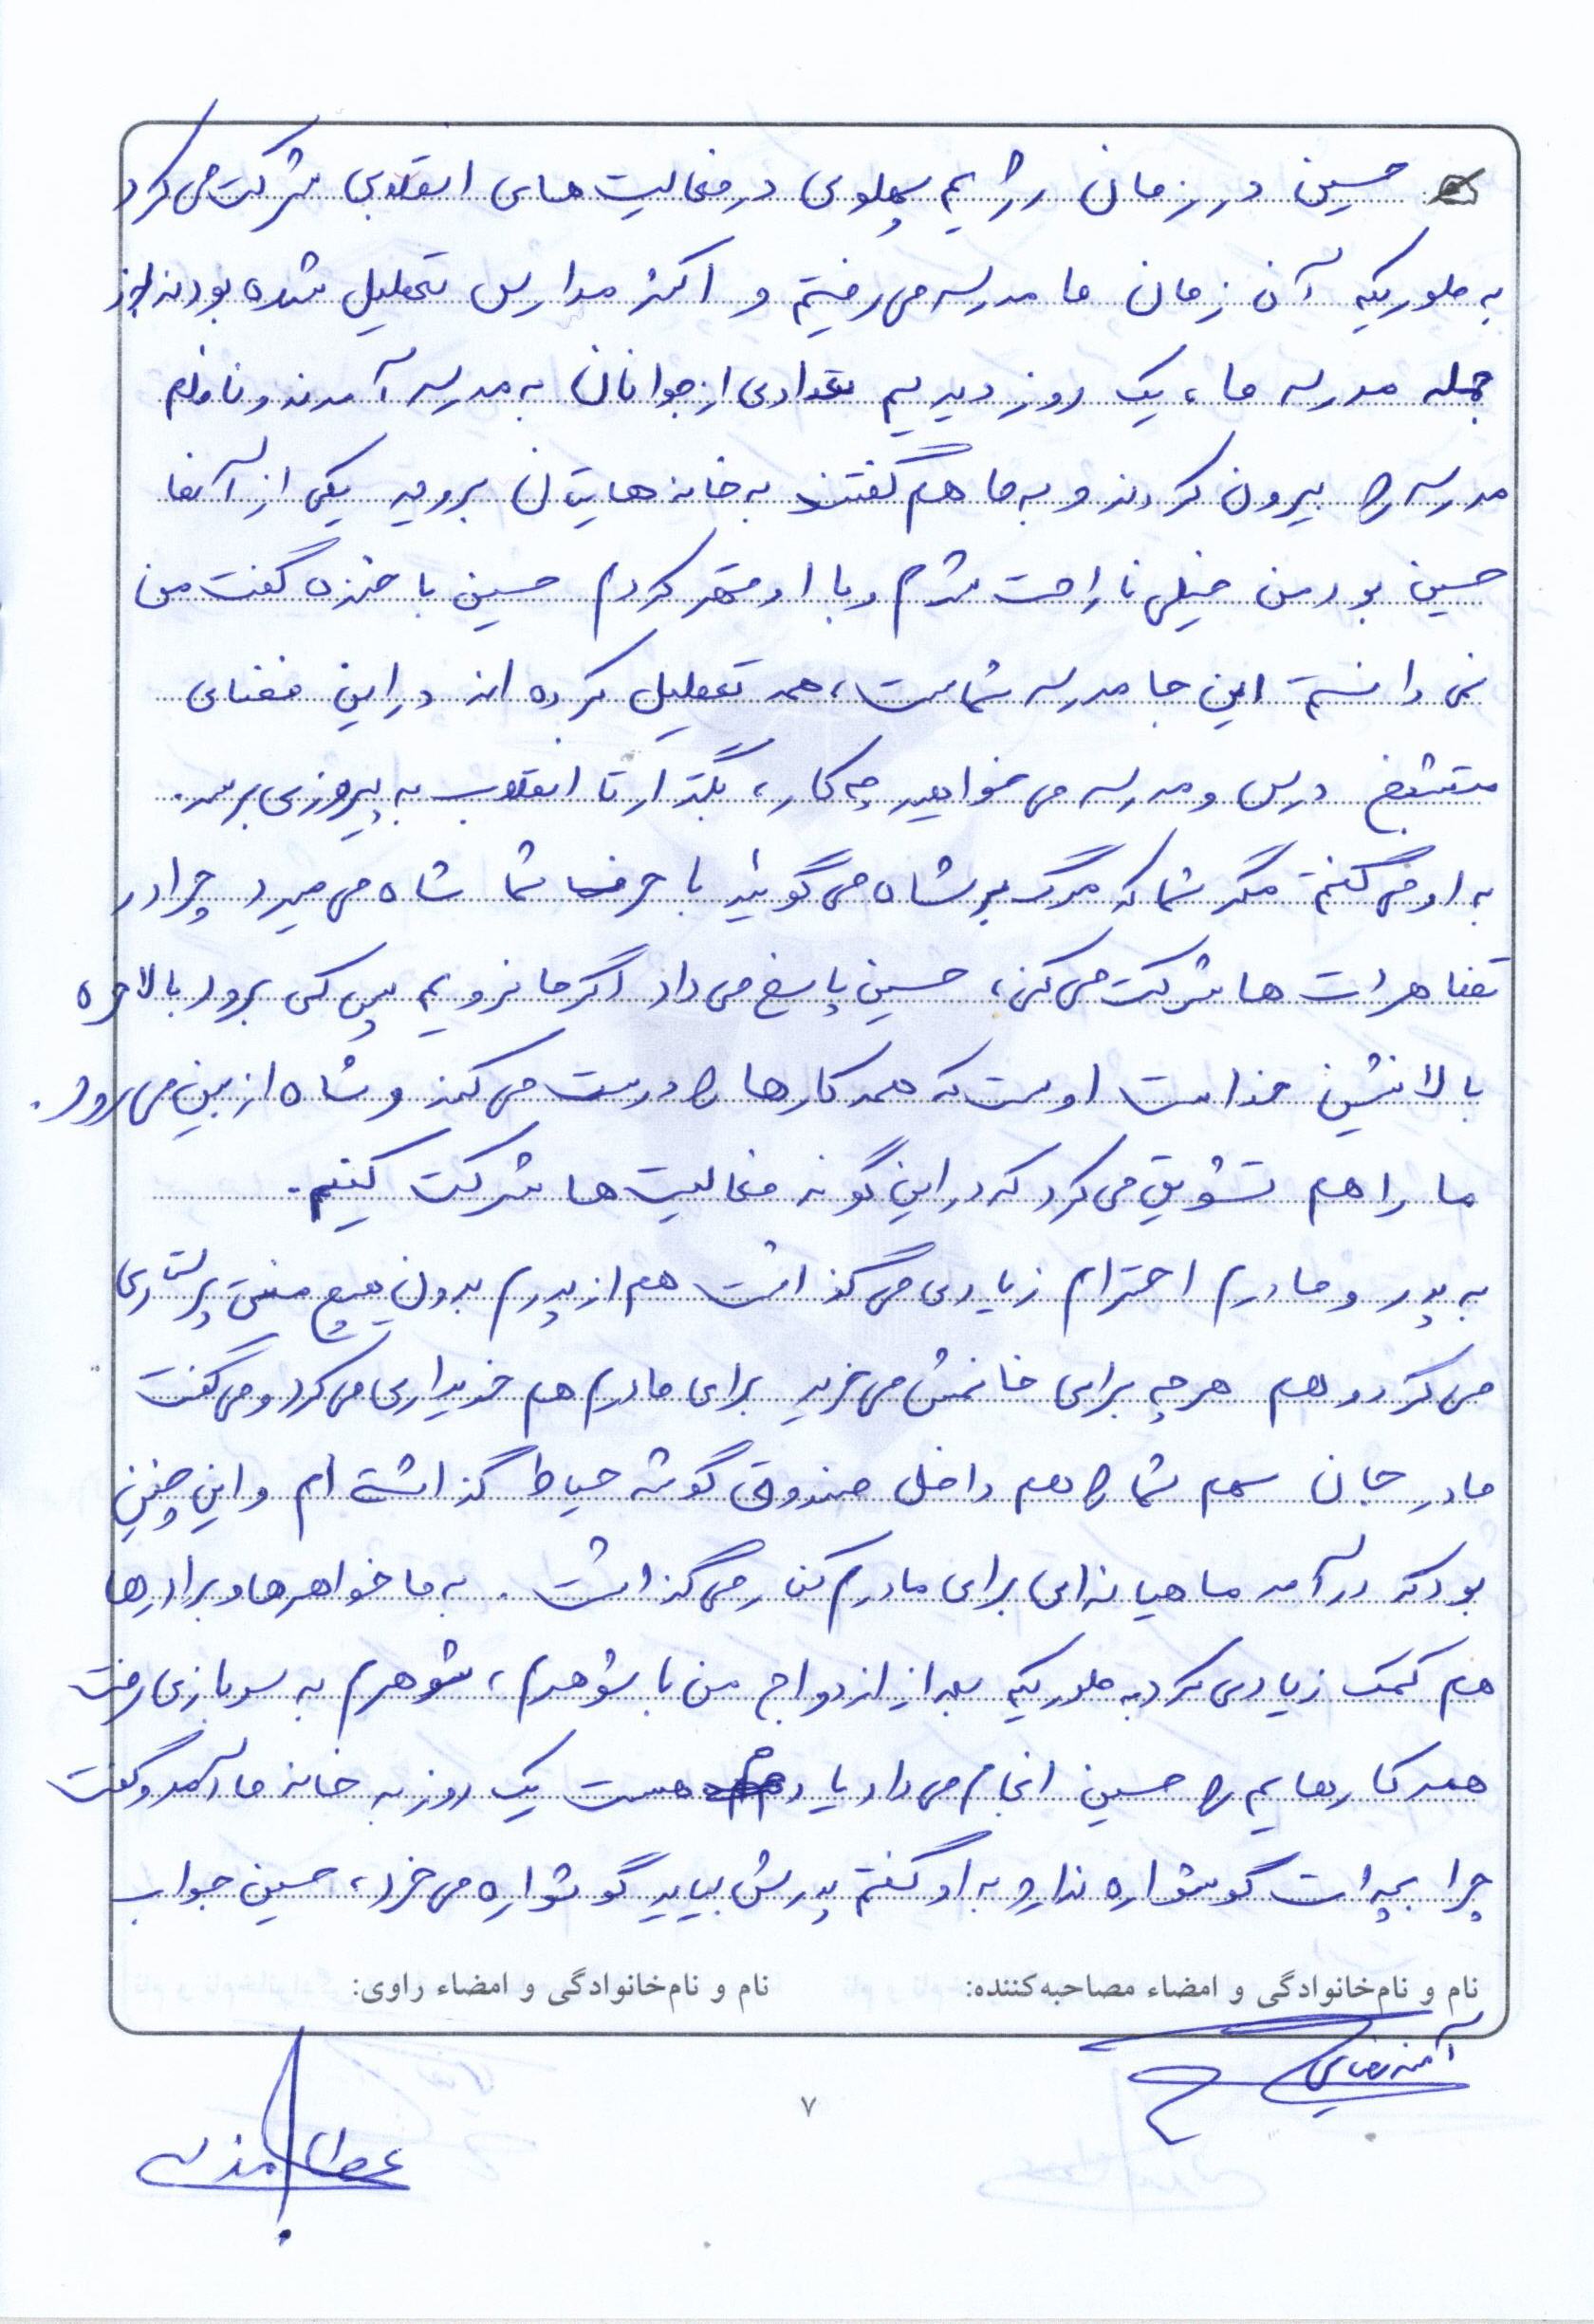 حسین در زمان رژیم پهلوی در فعالیت های انقلابی شرکت می کرد
به طوریکه آن زمان ما مدرسه می رفتیم و اکثر مدارس تعطیل شده بودند از
جمله مدرسه ما، یک روز دیدیم تعدادی از جوانان به مدرسه آمدند و ناظم
مدرسه را بیرون کردند و به ما هم گفتند به خانه هایتان بروید یکی از آنها
حسین بود من خیلی ناراحت شدم و با او قهر کردم حسین با خنده گفت من
نمی دانستم این جا مدرسه شماست، همه تعطیل کرده اند در این فضای
متشنج درس و مدرسه می خواهید چه کار، بگذار تا انقلاب به پیروزی برسد.
به او می گفتم مگر شما که مرگ بر شاه می گوئید با حرف شما شاه می میرد چرا در
تظاهرات ها شرکت می کنی، حسین پاسخ می داد اگر ما نرویم پس کی برود بالاخره
بالانشین خداست اوست که همه کارها را درست می کند و شاه از بین می رود.
ما را هم تشویق می کرد که در این گونه فعالیت ها شرکت کنیم.
به پدر و مادرم احترام زیادی می گذاشت هم از پدرم بدون هیچ منتی پرستاری
می کرد و هم هرچه برای خانمش می خرید برای مادرم هم خریداری می کرد و می گفت
مادر جان سهم شما را هم داخل صندوق گوشه حیاط گذاشته ام و این چنین
بود که درآمد ماهیانه ای برای مادرم کنار می گذاشت. به ما خواهرها و برادرها
هم کمک زیادی کرد به طوریکه بعد از ازدواج من با شوهرم، شوهرم به سربازی رفت
همه کارهایم را حسین انجام می داد یادم هست یک روز به خانه ما آمد و گفت
چرا بچه ات گوشواره ندارد به او گفتم پدرش بیاید گوشواره می خرد، حسین جواب
نام و نام‌خانوادگی و امضاء مصاحبه‌کننده:
نام و نام‌خانوادگی و امضاء راوی:
۷